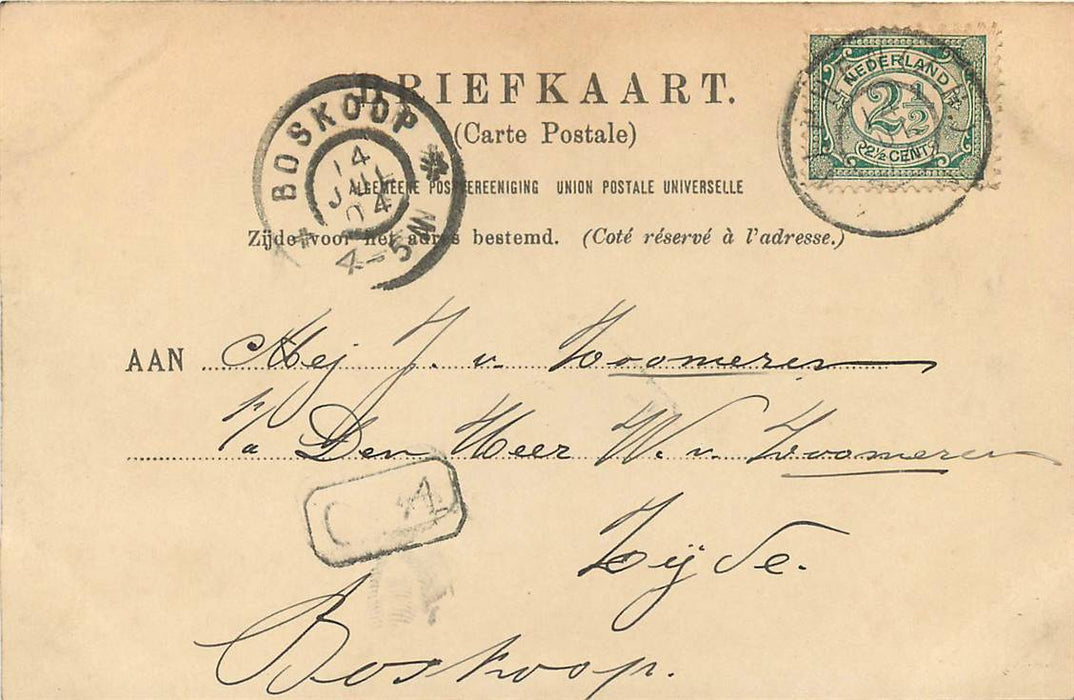 BRIEFKAART.
(Carte Postale)
ALGEMEENE POSTVEREENIGING UNION POSTALE UNIVERSELLE
Zijde voor het adres bestemd. (Coté réservé à l'adresse.)
NEDERLAND
2½
2½ CENT
BOSKOOP
14
JUL
04
4-5 N
AAN Mej J. v. Zoomeren
p/a Den Heer W. v. Zoomeren
Zijde.
Boskoop.